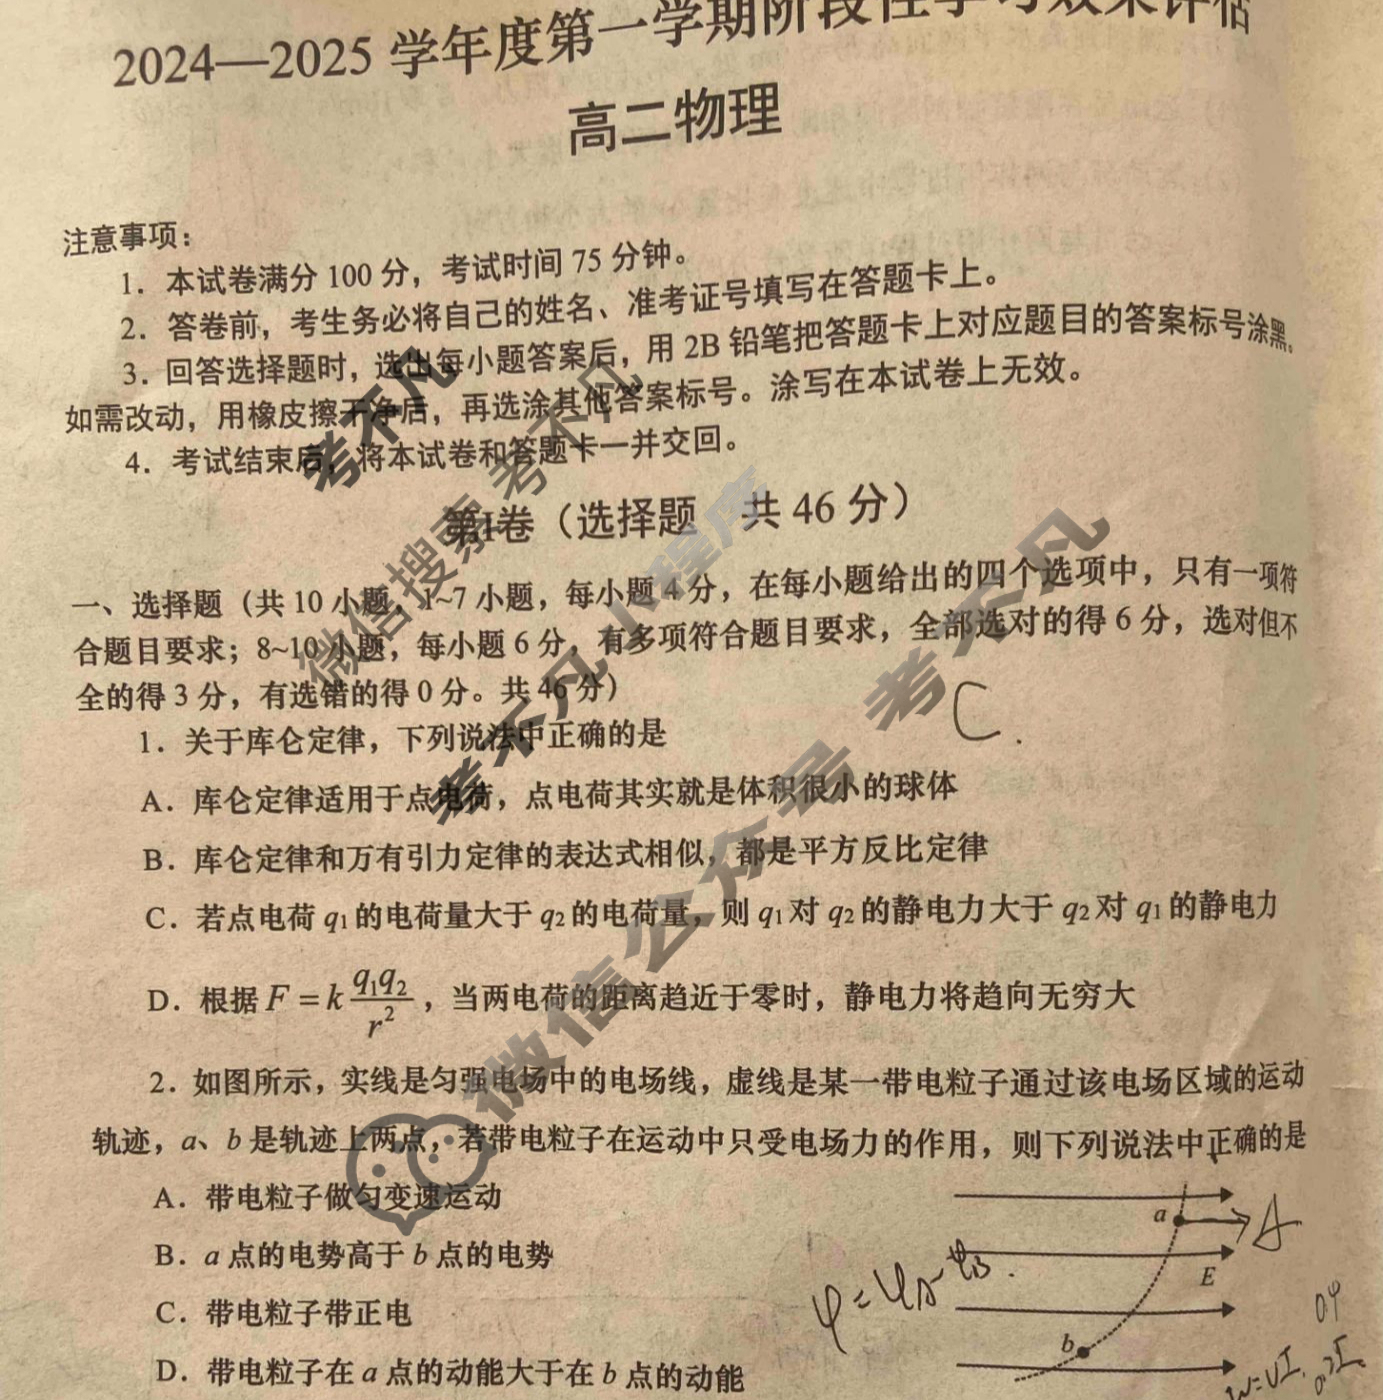 2024—2025 学年度第一学期阶段性学习效果评估
高二物理
注意事项：
1．本试卷满分 100 分，考试时间 75 分钟。
2．答卷前，考生务必将自己的姓名、准考证号填写在答题卡上。
3．回答选择题时，选出每小题答案后，用 2B 铅笔把答题卡上对应题目的答案标号涂黑。
如需改动，用橡皮擦干净后，再选涂其他答案标号。涂写在本试卷上无效。
4．考试结束后，将本试卷和答题卡一并交回。
第Ⅰ卷（选择题 共 46 分）
一、选择题（共 10 小题，1~7 小题，每小题 4 分，在每小题给出的四个选项中，只有一项符
合题目要求；8~10 小题，每小题 6 分，有多项符合题目要求，全部选对的得 6 分，选对但不
全的得 3 分，有选错的得 0 分。共 46 分）
C.
1．关于库仑定律，下列说法中正确的是
A．库仑定律适用于点电荷，点电荷其实就是体积很小的球体
B．库仑定律和万有引力定律的表达式相似，都是平方反比定律
C．若点电荷 q₁ 的电荷量大于 q₂ 的电荷量，则 q₁ 对 q₂ 的静电力大于 q₂ 对 q₁ 的静电力
D．根据 F = k q₁q₂/r²，当两电荷的距离趋近于零时，静电力将趋向无穷大
2．如图所示，实线是匀强电场中的电场线，虚线是某一带电粒子通过该电场区域的运动
轨迹，a、b 是轨迹上两点，若带电粒子在运动中只受电场力的作用，则下列说法中正确的是
A．带电粒子做匀变速运动
B．a 点的电势高于 b 点的电势
C．带电粒子带正电
D．带电粒子在 a 点的动能大于在 b 点的动能
a
E
b
考不凡
微信搜索考不凡
考不凡小程序
微信公众号 考不凡